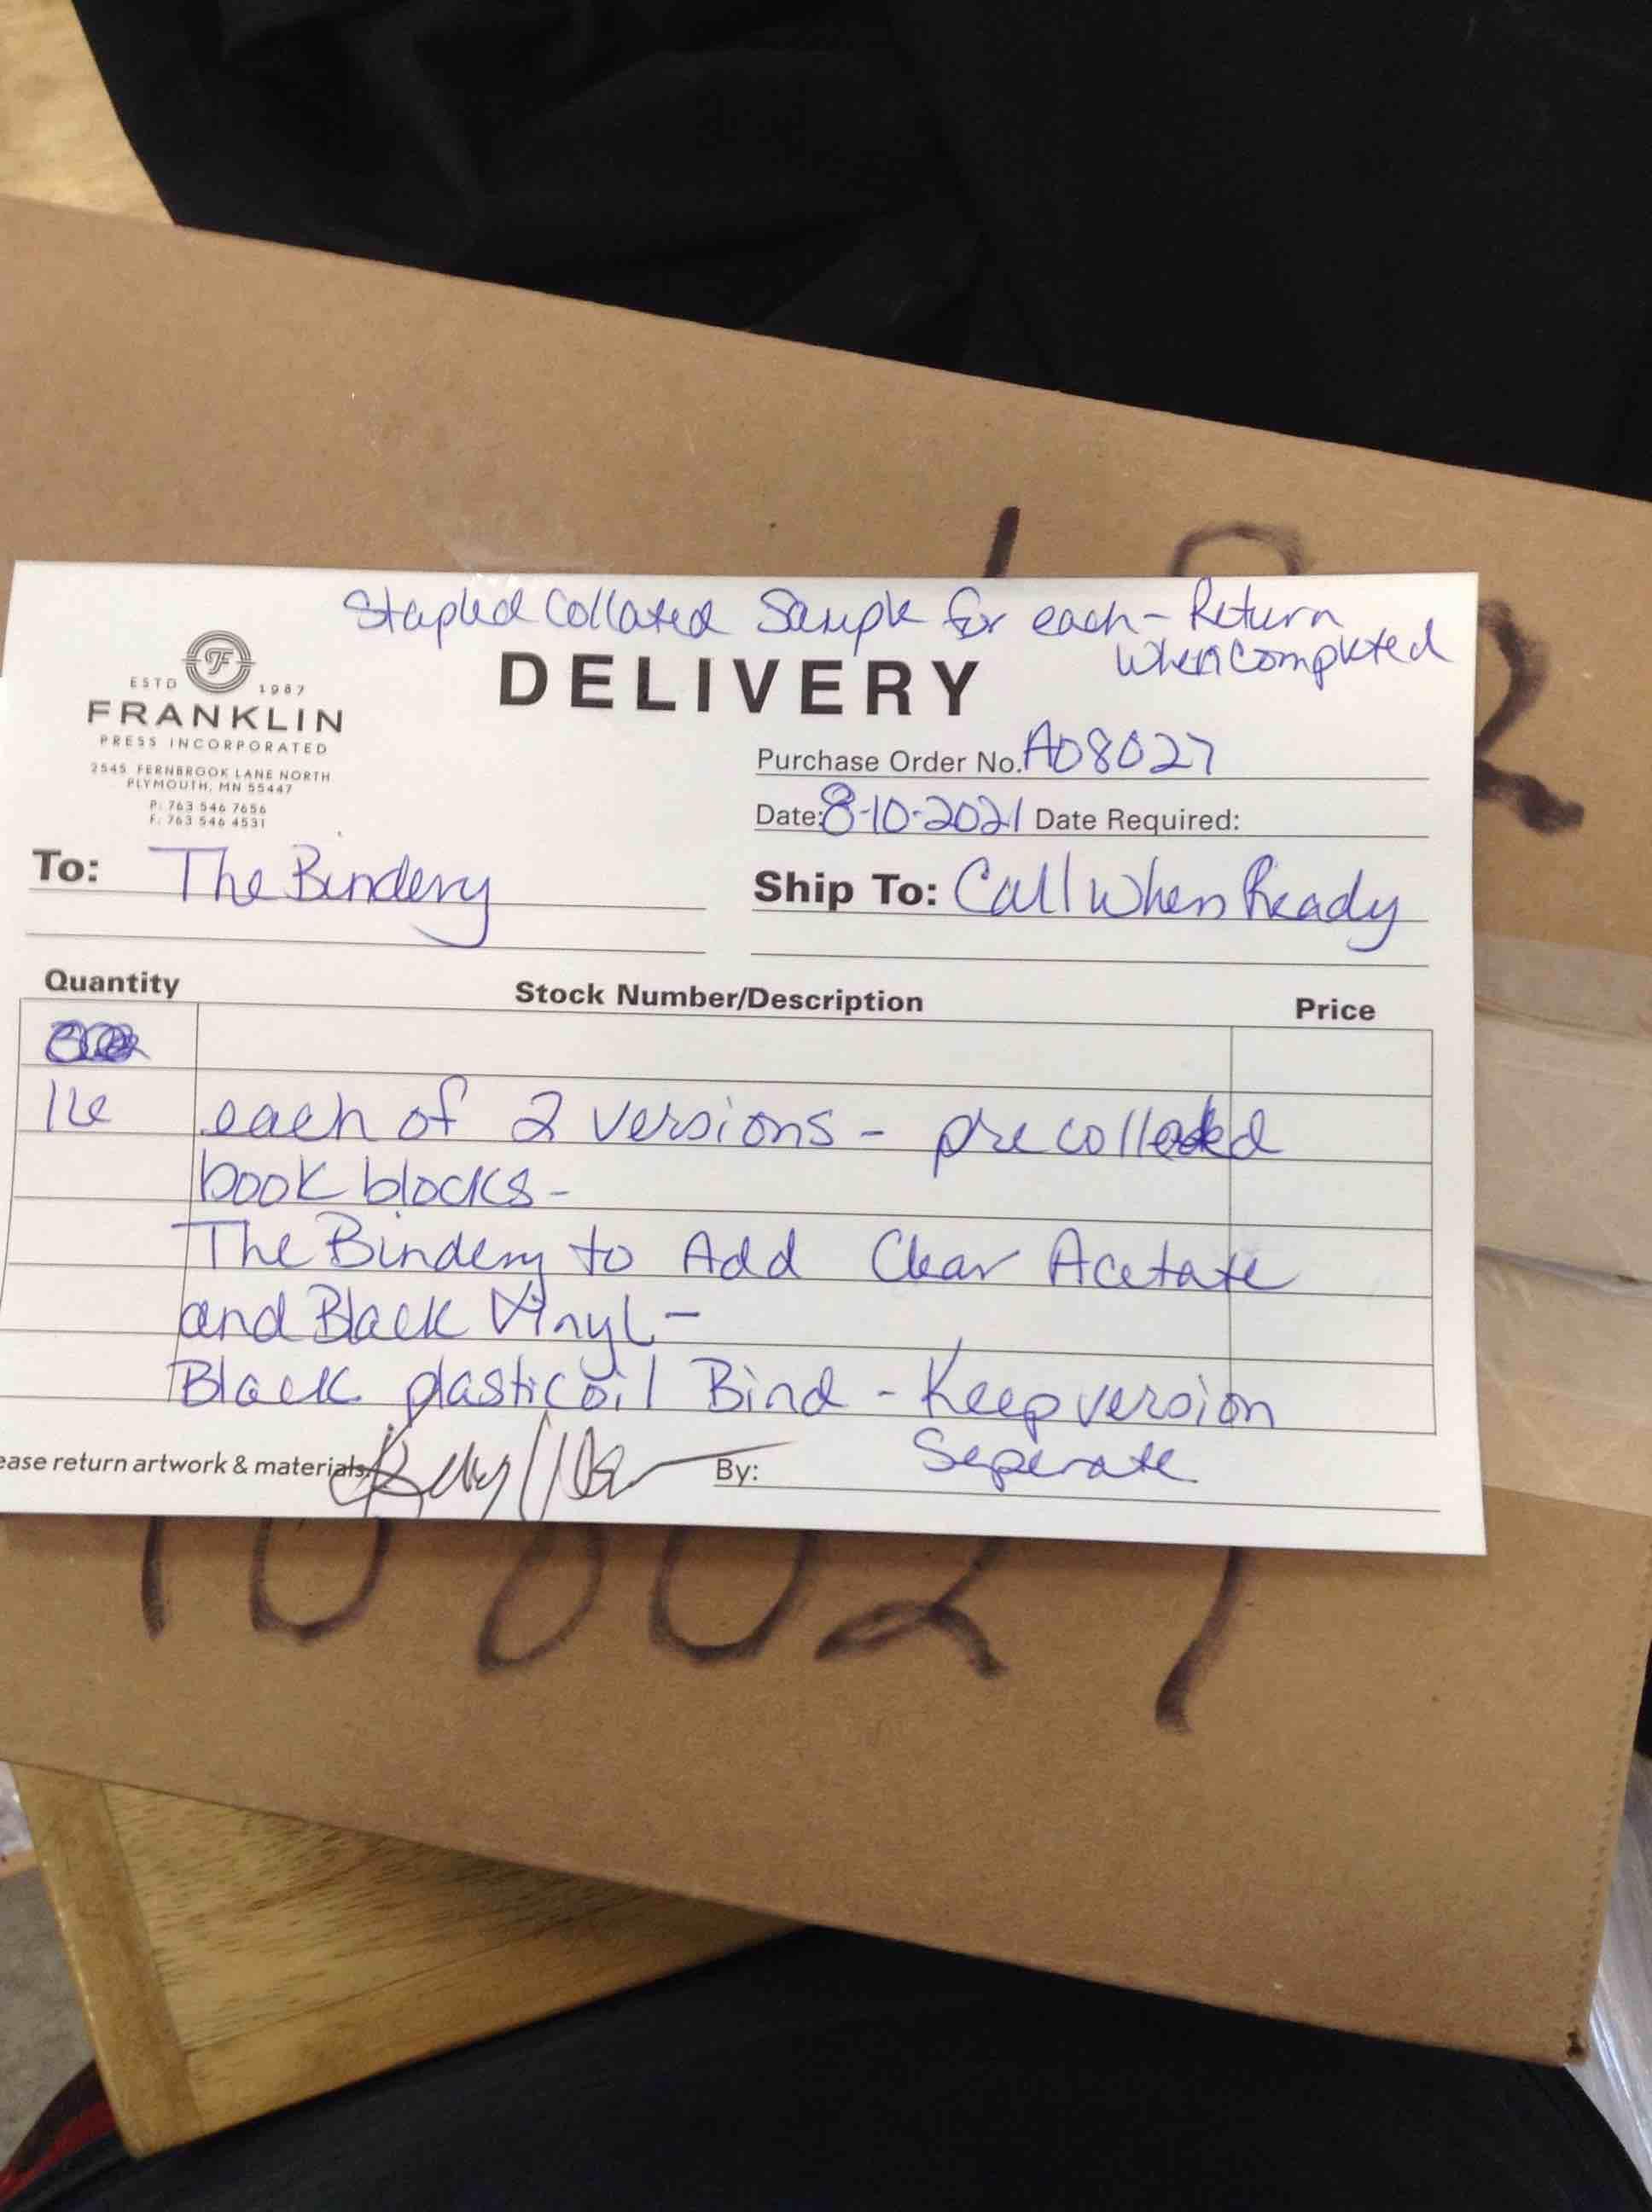 Stapled Collated Sample for each - Return
when completed
DELIVERY
ESTD 1987
FRANKLIN
PRESS INCORPORATED
2545 FERNBROOK LANE NORTH
PLYMOUTH, MN 55447
P: 763 546 7656
F: 763 546 4531
Purchase Order No. A08027
Date: 8-10-2021 Date Required:
To: The Bindery
Ship To: Call When Ready
Quantity Stock Number/Description Price
16 each of 2 versions - pre collated
book blocks -
The Bindery to Add Clear Acetate
and Black Vinyl -
Black plasticoil Bind - Keep version
Seperate
ease return artwork & materials
By: